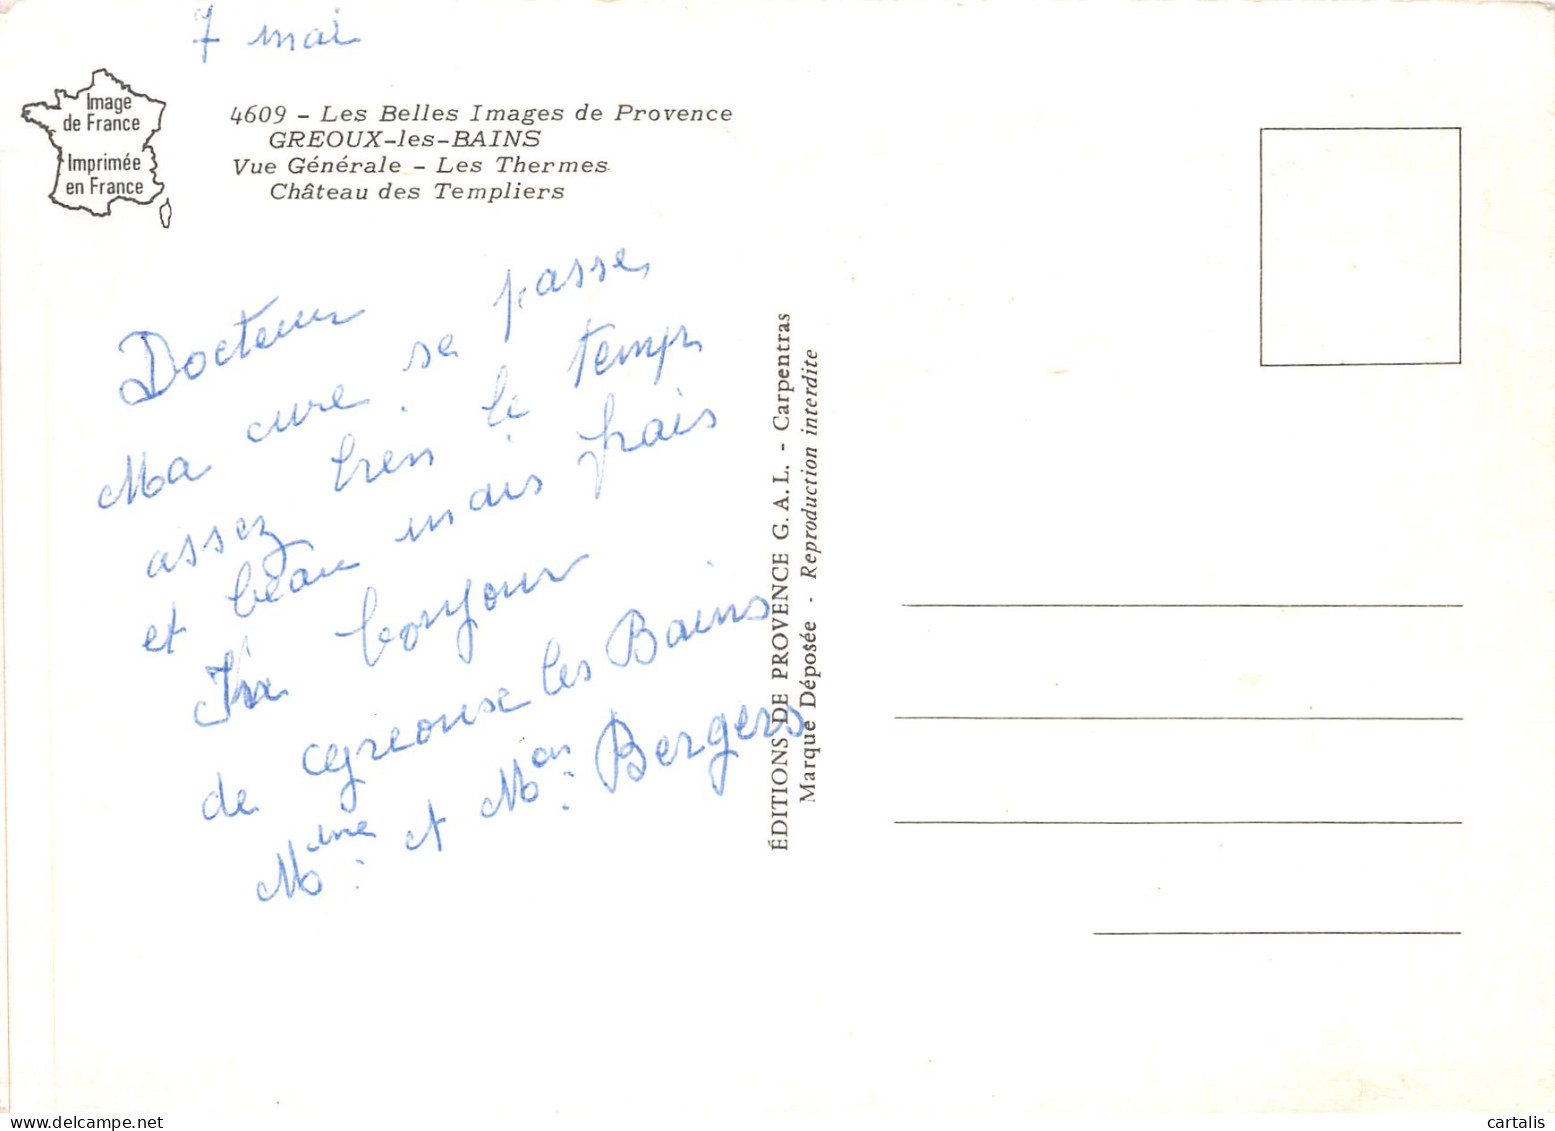 7 mai
Image
de France
Imprimée
en France
4609 - Les Belles Images de Provence
GREOUX-les-BAINS
Vue Générale - Les Thermes
Château des Templiers
Docteur
Ma cure se passe
assez bien le temps
et beau mais frais
bonjour
de Greouse les Bains
Mme et Mr Bergers
ÉDITIONS DE PROVENCE G.A.L. - Carpentras
Marque Déposée - Reproduction interdite
cartalis